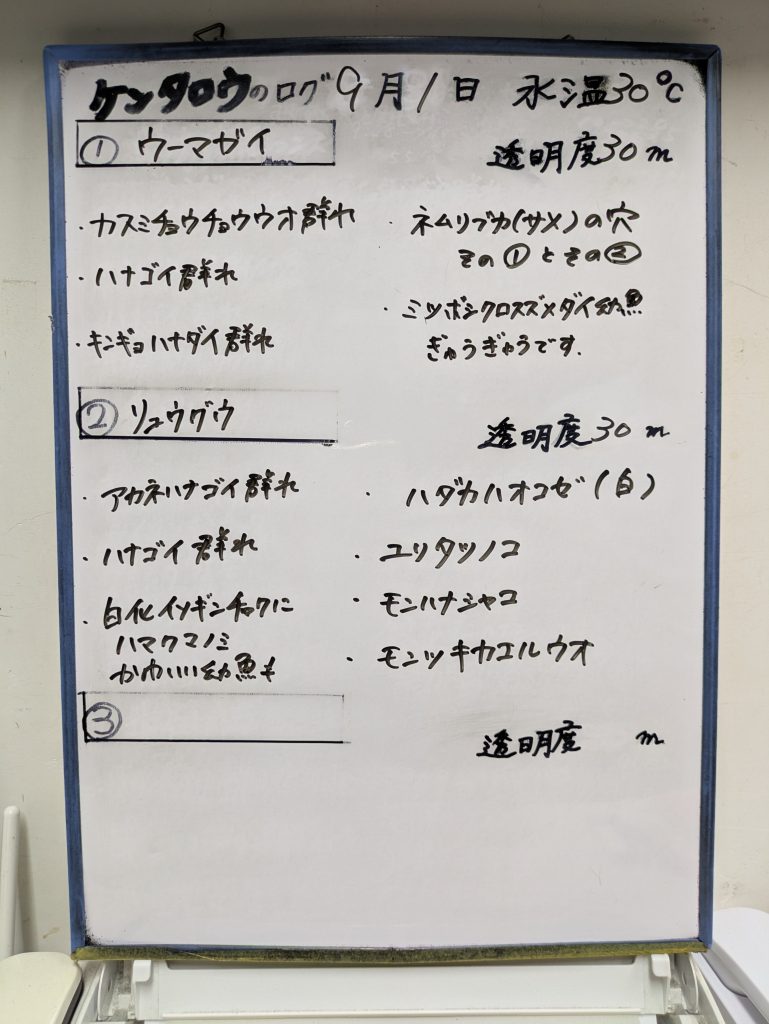 ケンタロウのログ 9月1日 水温30℃
① ウーマガイ
透明度30m
・カスミチョウチョウウオ群れ
・ハナゴイ群れ
・キンギョハナダイ群れ
・ネムリブカ(サメ)の穴
その①とその②
・ミツボシクロスズメダイ幼魚
ぎゅうぎゅうです.
② リュウグウ
透明度30m
・アカネハナゴイ群れ
・ハナゴイ群れ
・白化イソギンチャクに
ハマクマノミ
かわいい幼魚も
・ハダカハオコゼ(白)
・ユリタツノコ
・モンハナシャコ
・モンツキカエルウオ
③
透明度 m